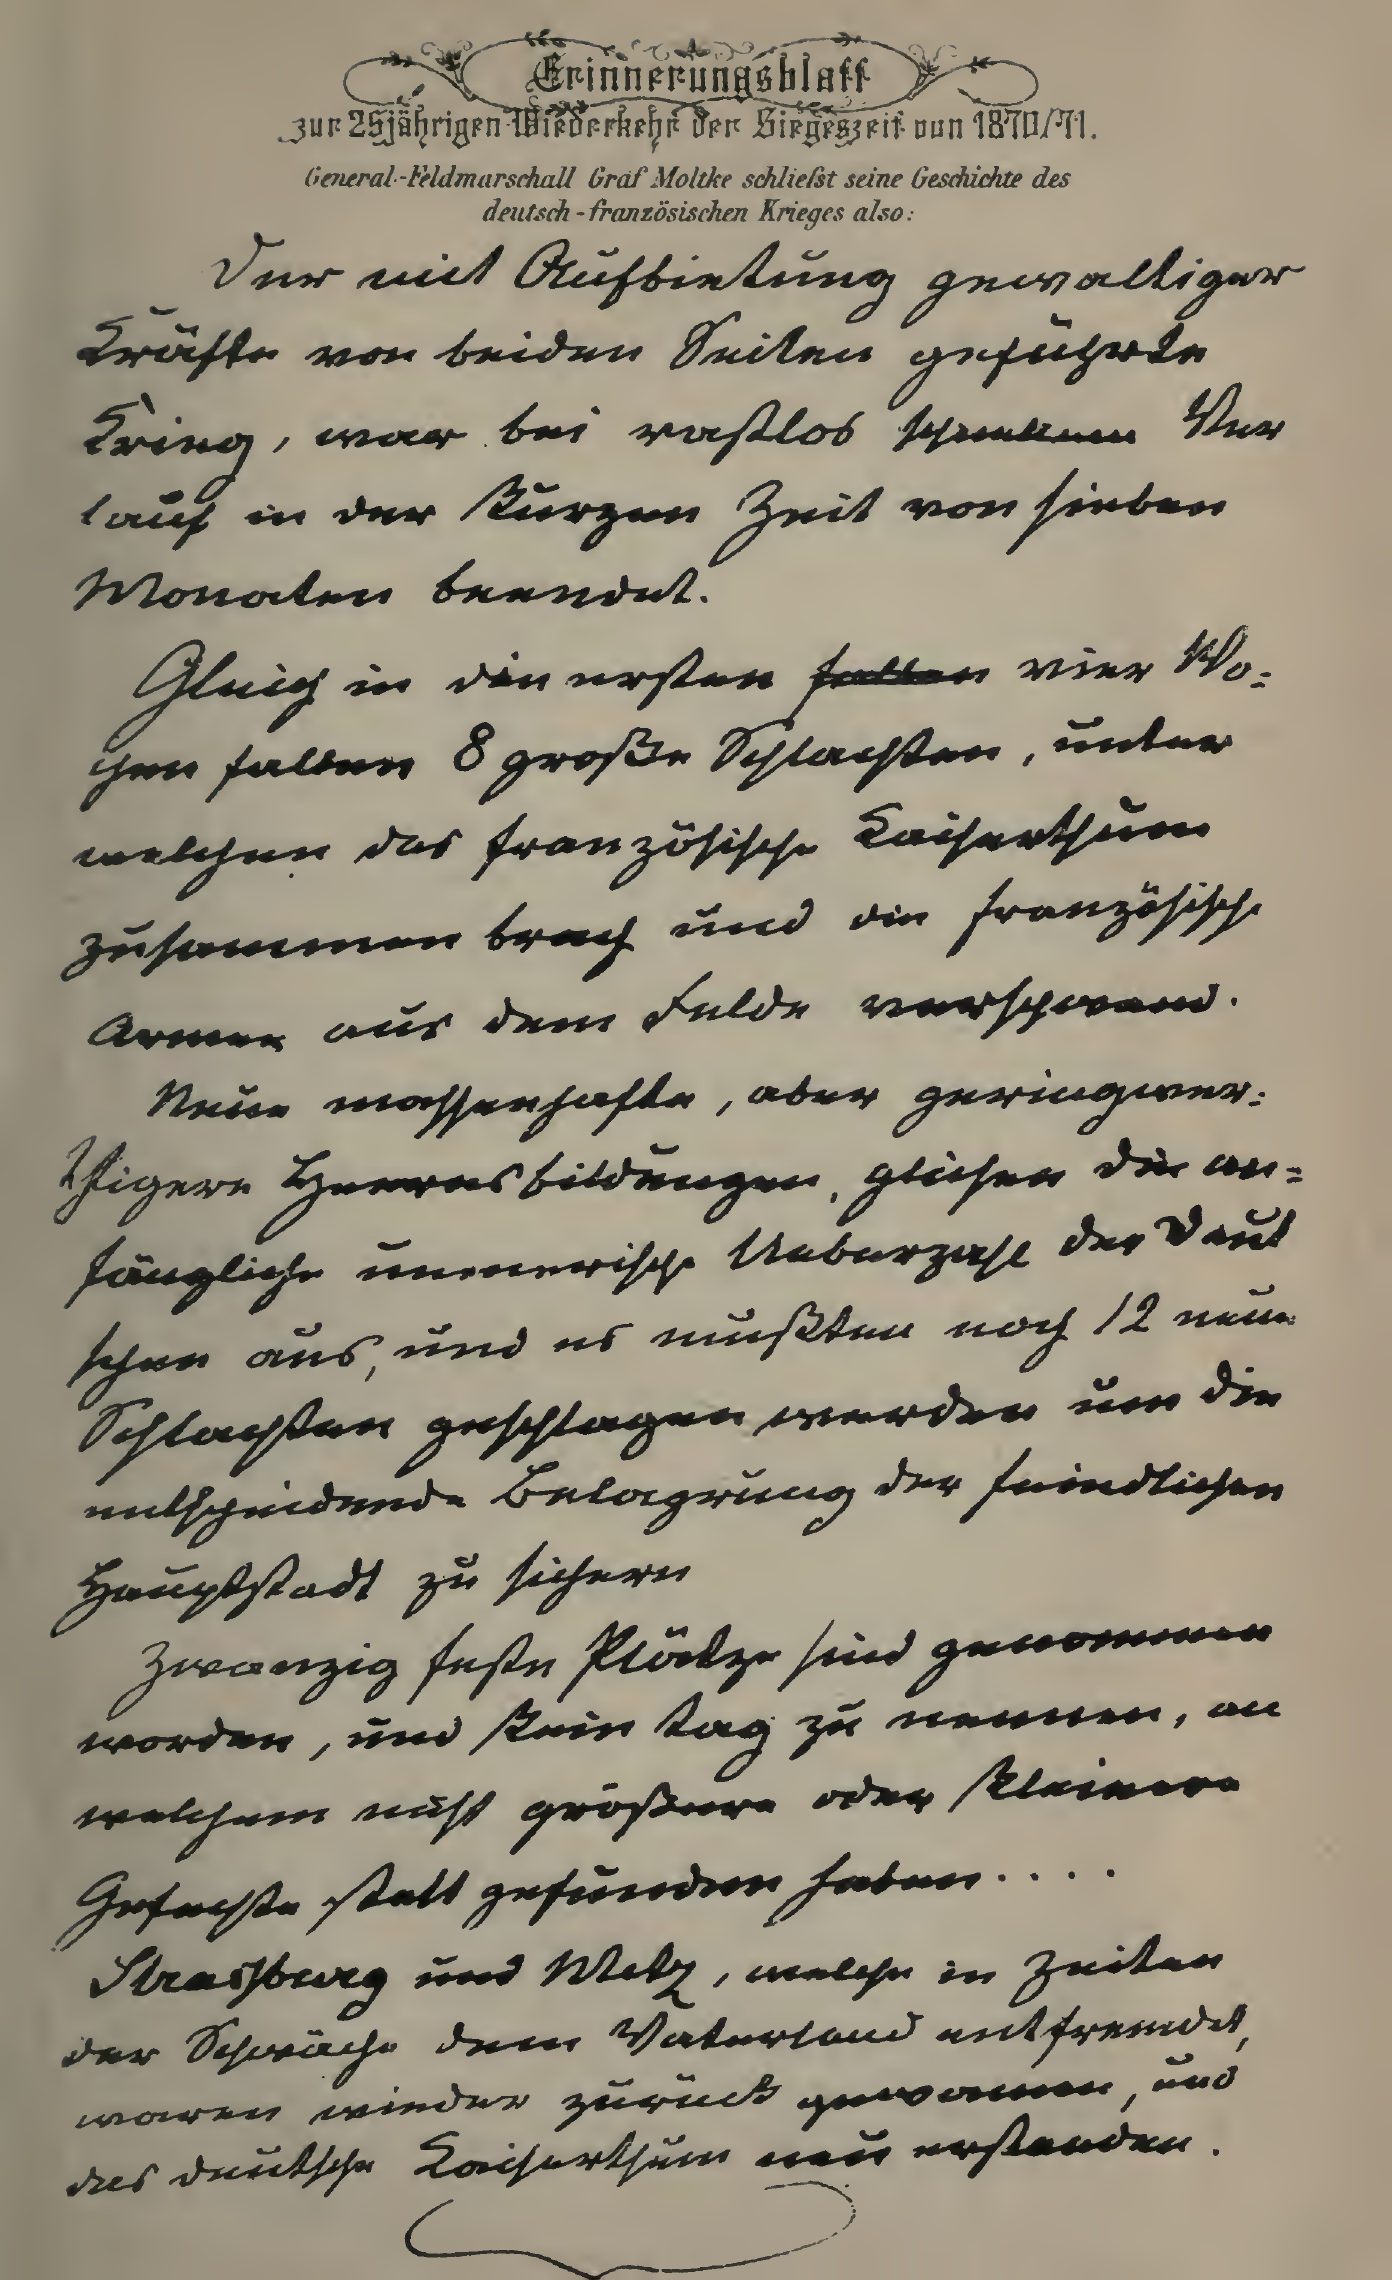 Erinnerungsblatt
zur 25jährigen Wiederkehr der Siegeszeit von 1870/71.
General-Feldmarschall Graf Moltke schliefst seine Geschichte des
deutsch-französischen Krieges also:
Der mit Aufbietung gewaltiger
Kräfte von beiden Seiten geführte
Krieg, war bei raßtlos schnellem Ver
lauf in der kurzen Zeit von sieben
Monaten beendet.
Gleich in den ersten fallen vier Wo=
chen fallen 8 große Schlachten, unter
welchen das französische Kaiserthum
zusammen brach und die französische
Armee aus dem Felde verschwand.
Neue massenhafte, aber geringwer=
thigere Heeresbildungen, glichen die an=
fängliche numerische Ueberzahl der Deut
schen aus, und es mußten noch 12 neue
Schlachten geschlagen werden um die
entscheidende Belagrung der feindlichen
Hauptstadt zu sichern
Zwanzig feste Plätze sind genommen
worden, und kein tag zu nennen, an
welchem nicht größere oder kleinere
Gefechte statt gefunden haben....
Strassburg und Metz, welche in Zeiten
der Schwäche dem Vaterland entfremdet,
waren wieder zurück gewonnen, und
das deutsche Kaiserthum neu erstanden.